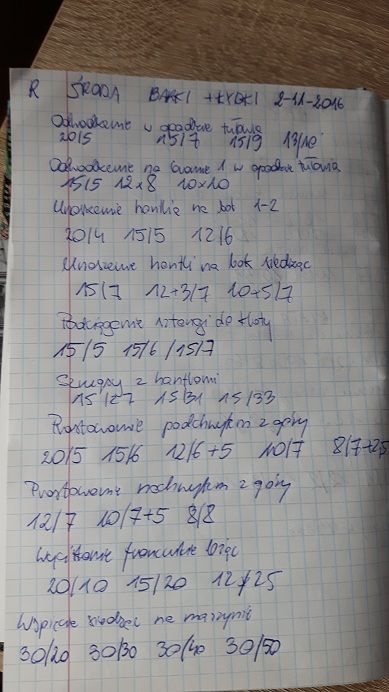 R ŚRODA BARKI + ŁYDKI 2-11-2016
Odwodzenie w opadzie tułowia
20/5 15/7 15/9 13/10
Odwodzenie na bramie 1 w opadzie tułowia
15/5 12x8 10x10
Unoszenie hantlia na bok 1-2
20/4 15/5 12/6
Unoszenie hantli na bok siedząc
15/7 12+3/7 10+5/7
Podciąganie sztangi do klaty
15/5 15/6 /15/7
Szrugsy z hantlami
15/27 15/31 15/33
Prostowanie podchwytem z góry
20/5 15/6 12/6+5 10/7 8/7+2,5
Prostowanie nachwytem z góry
12/7 10/7+5 8/8
Wyciskanie francuskie leżąc
20/10 15/20 12/25
Wspięcie siedząc na maszynie
30/20 30/30 30/40 30/50